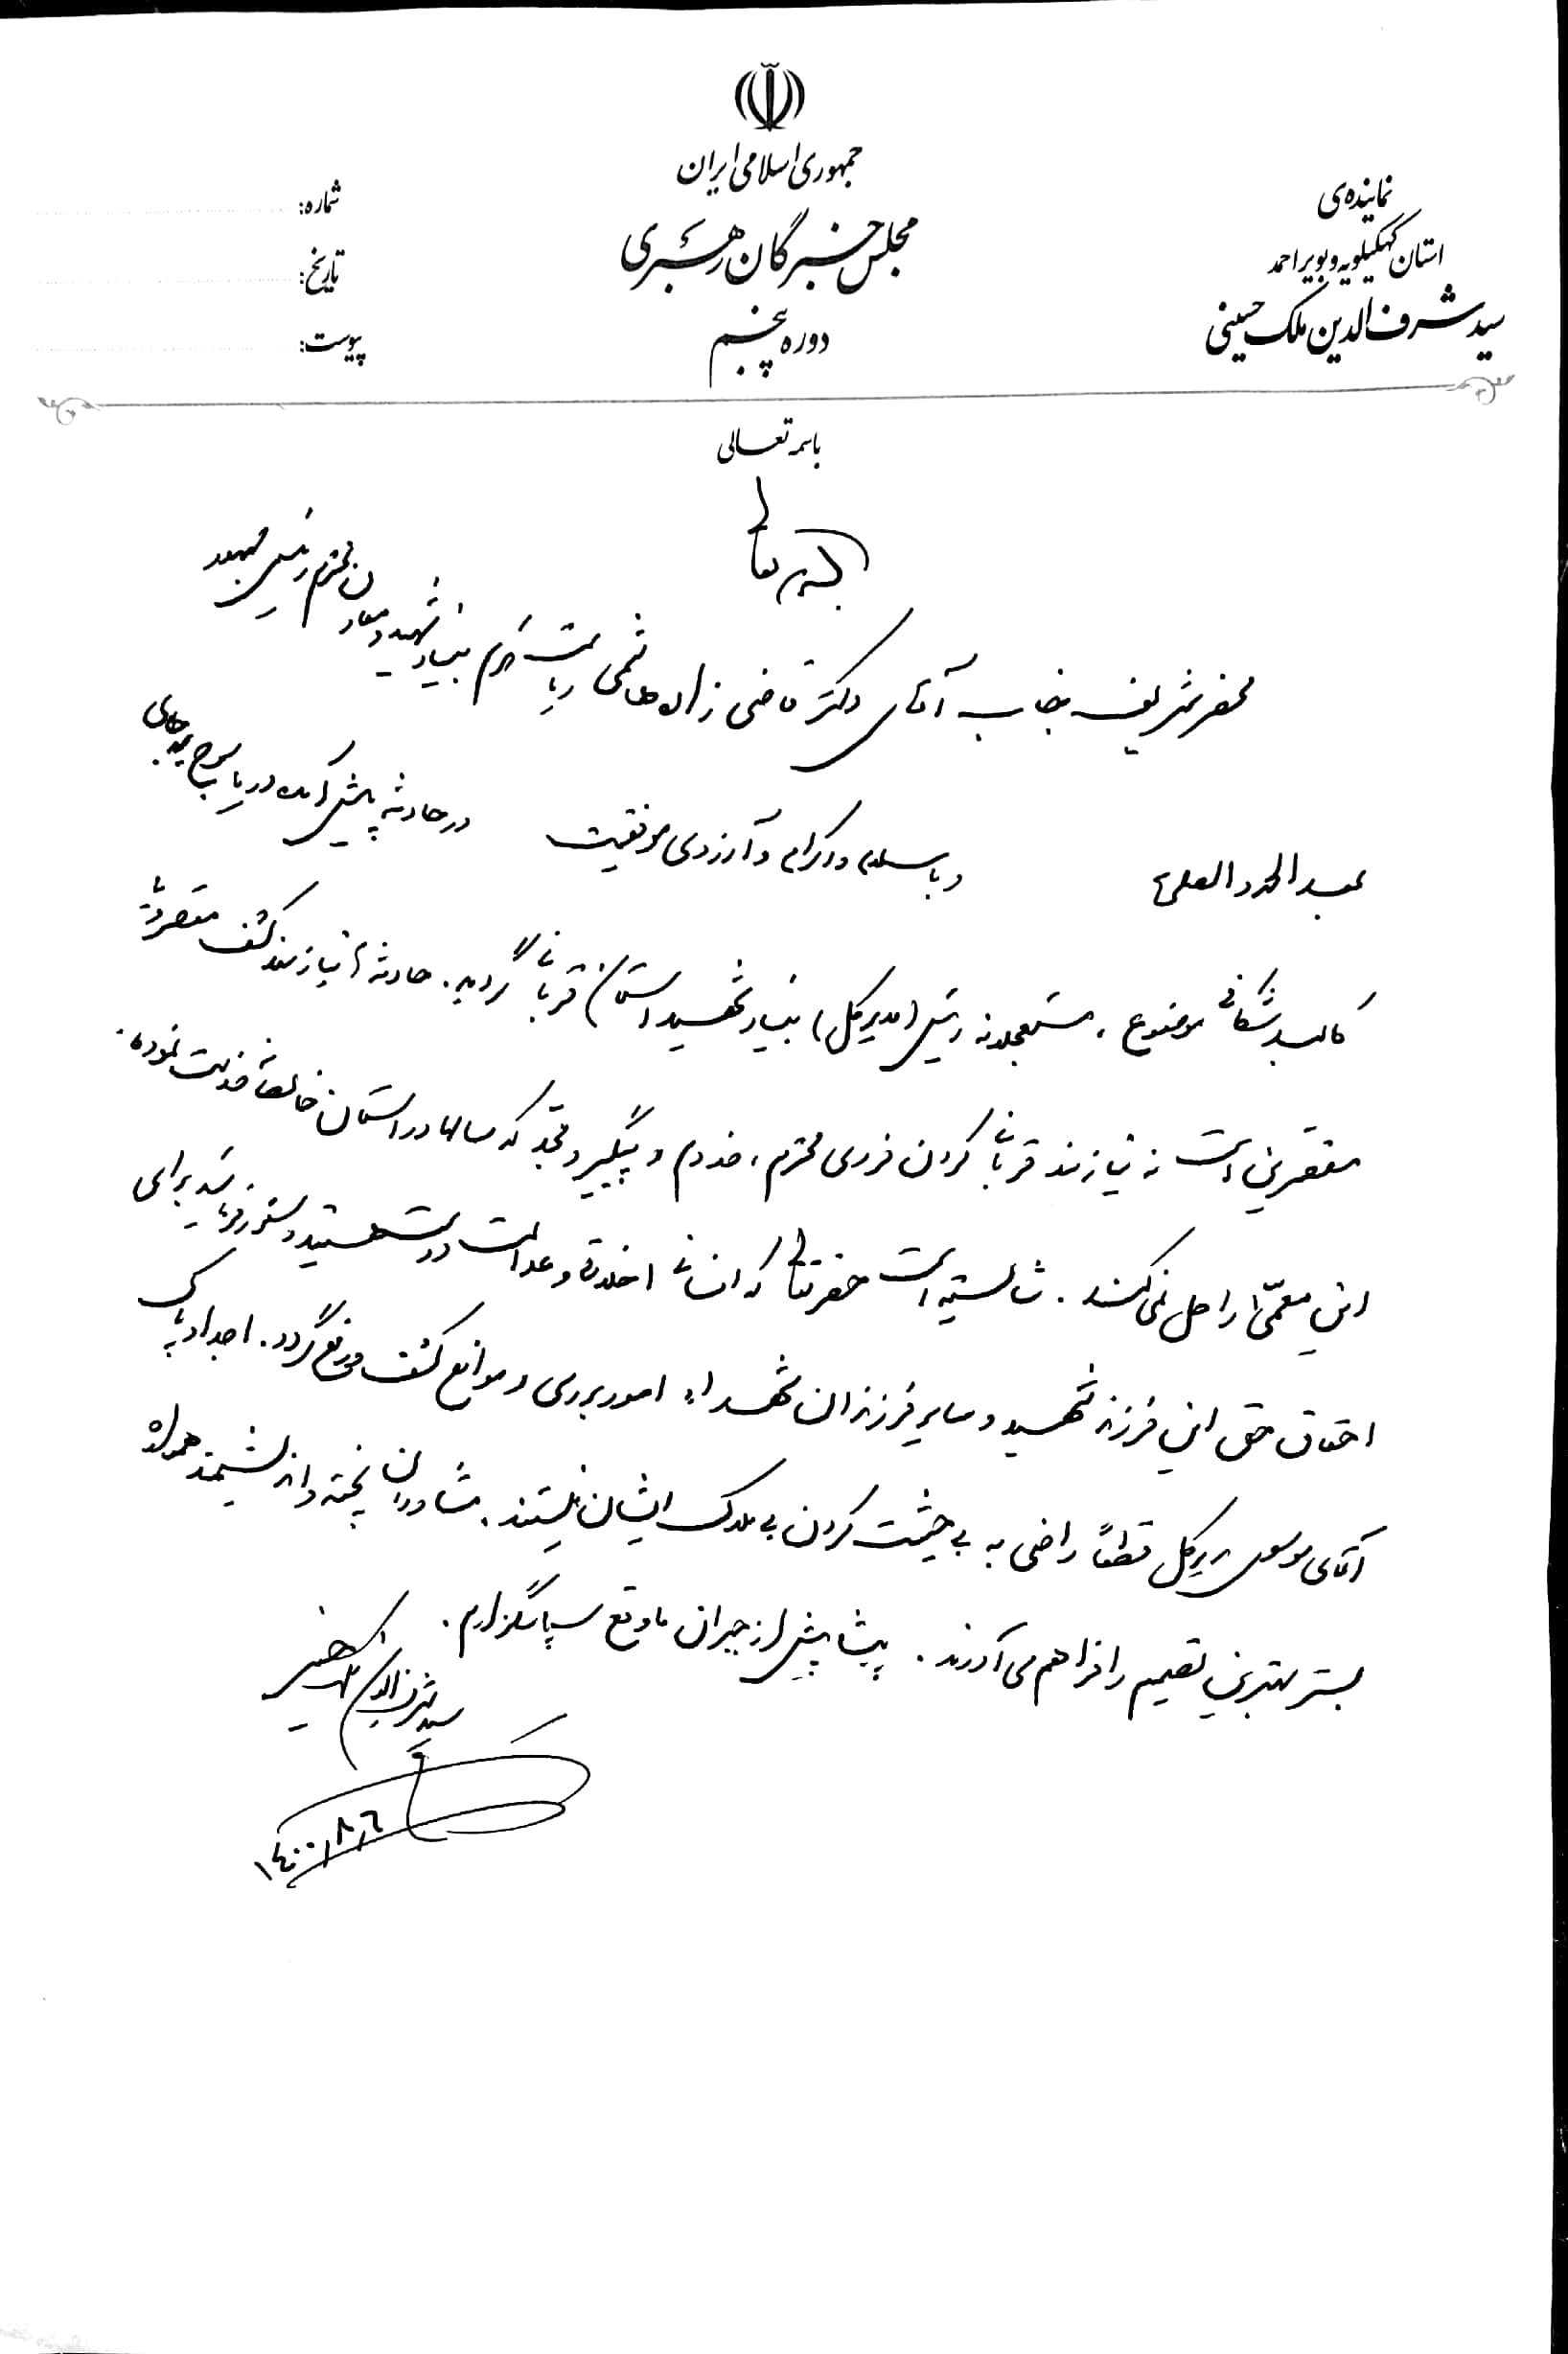 جمهوری اسلامی ایران
مجلس خبرگان رهبری
دوره پنجم
نماینده‌ی
استان کهگیلویه و بویراحمد
سید شرف الدین ملک حسینی
شماره:
تاریخ:
پیوست:
باسمه تعالی
بسمه تعالی
محضر شریف جناب آقای دکتر قاضی زاده هاشمی ریاست محترم بنیاد شهید و معاون محترم رئیس جمهور
بعد الحمد و الصلاة و با سلام و اکرام و آرزوی موفقیت در حادثه پیش آمده در یاسوج بجای
کالبد شکافی موضوع، مستعجلانه رئیس (مدیرکل) بنیاد شهید استان قربانی گردید. حادثه نیازمند کشف مقصر یا
مقصرین است نه نیازمند قربانی کردن فردی محترم، خدوم و پیگیر و مجد که سالها در استان خالصانه خدمت نموده.
این معمّا را حل نمی‌کند. شایسته است حضرتعالی که انسانی اخلاقی و عدالت دوست هستید دستور فرمائید برای
احقاق حق این فرزند شهید و سایر فرزندان شهداء امور بررسی و موانع کشف و رفع گردد. اجداد پاک
آقای موسوی مدیرکل قطعاً راضی به بی حیثیت کردن بی مدرک ایشان نیستند. مشاوران پخته و اندیشمند همواره
بستر بهترین تصمیم را فراهم می‌آورند. پیشاپیش از جبران ماوقع سپاسگزارم.
سید شرف الدین ملک حسینی
۱۴۰۰/۸/۶